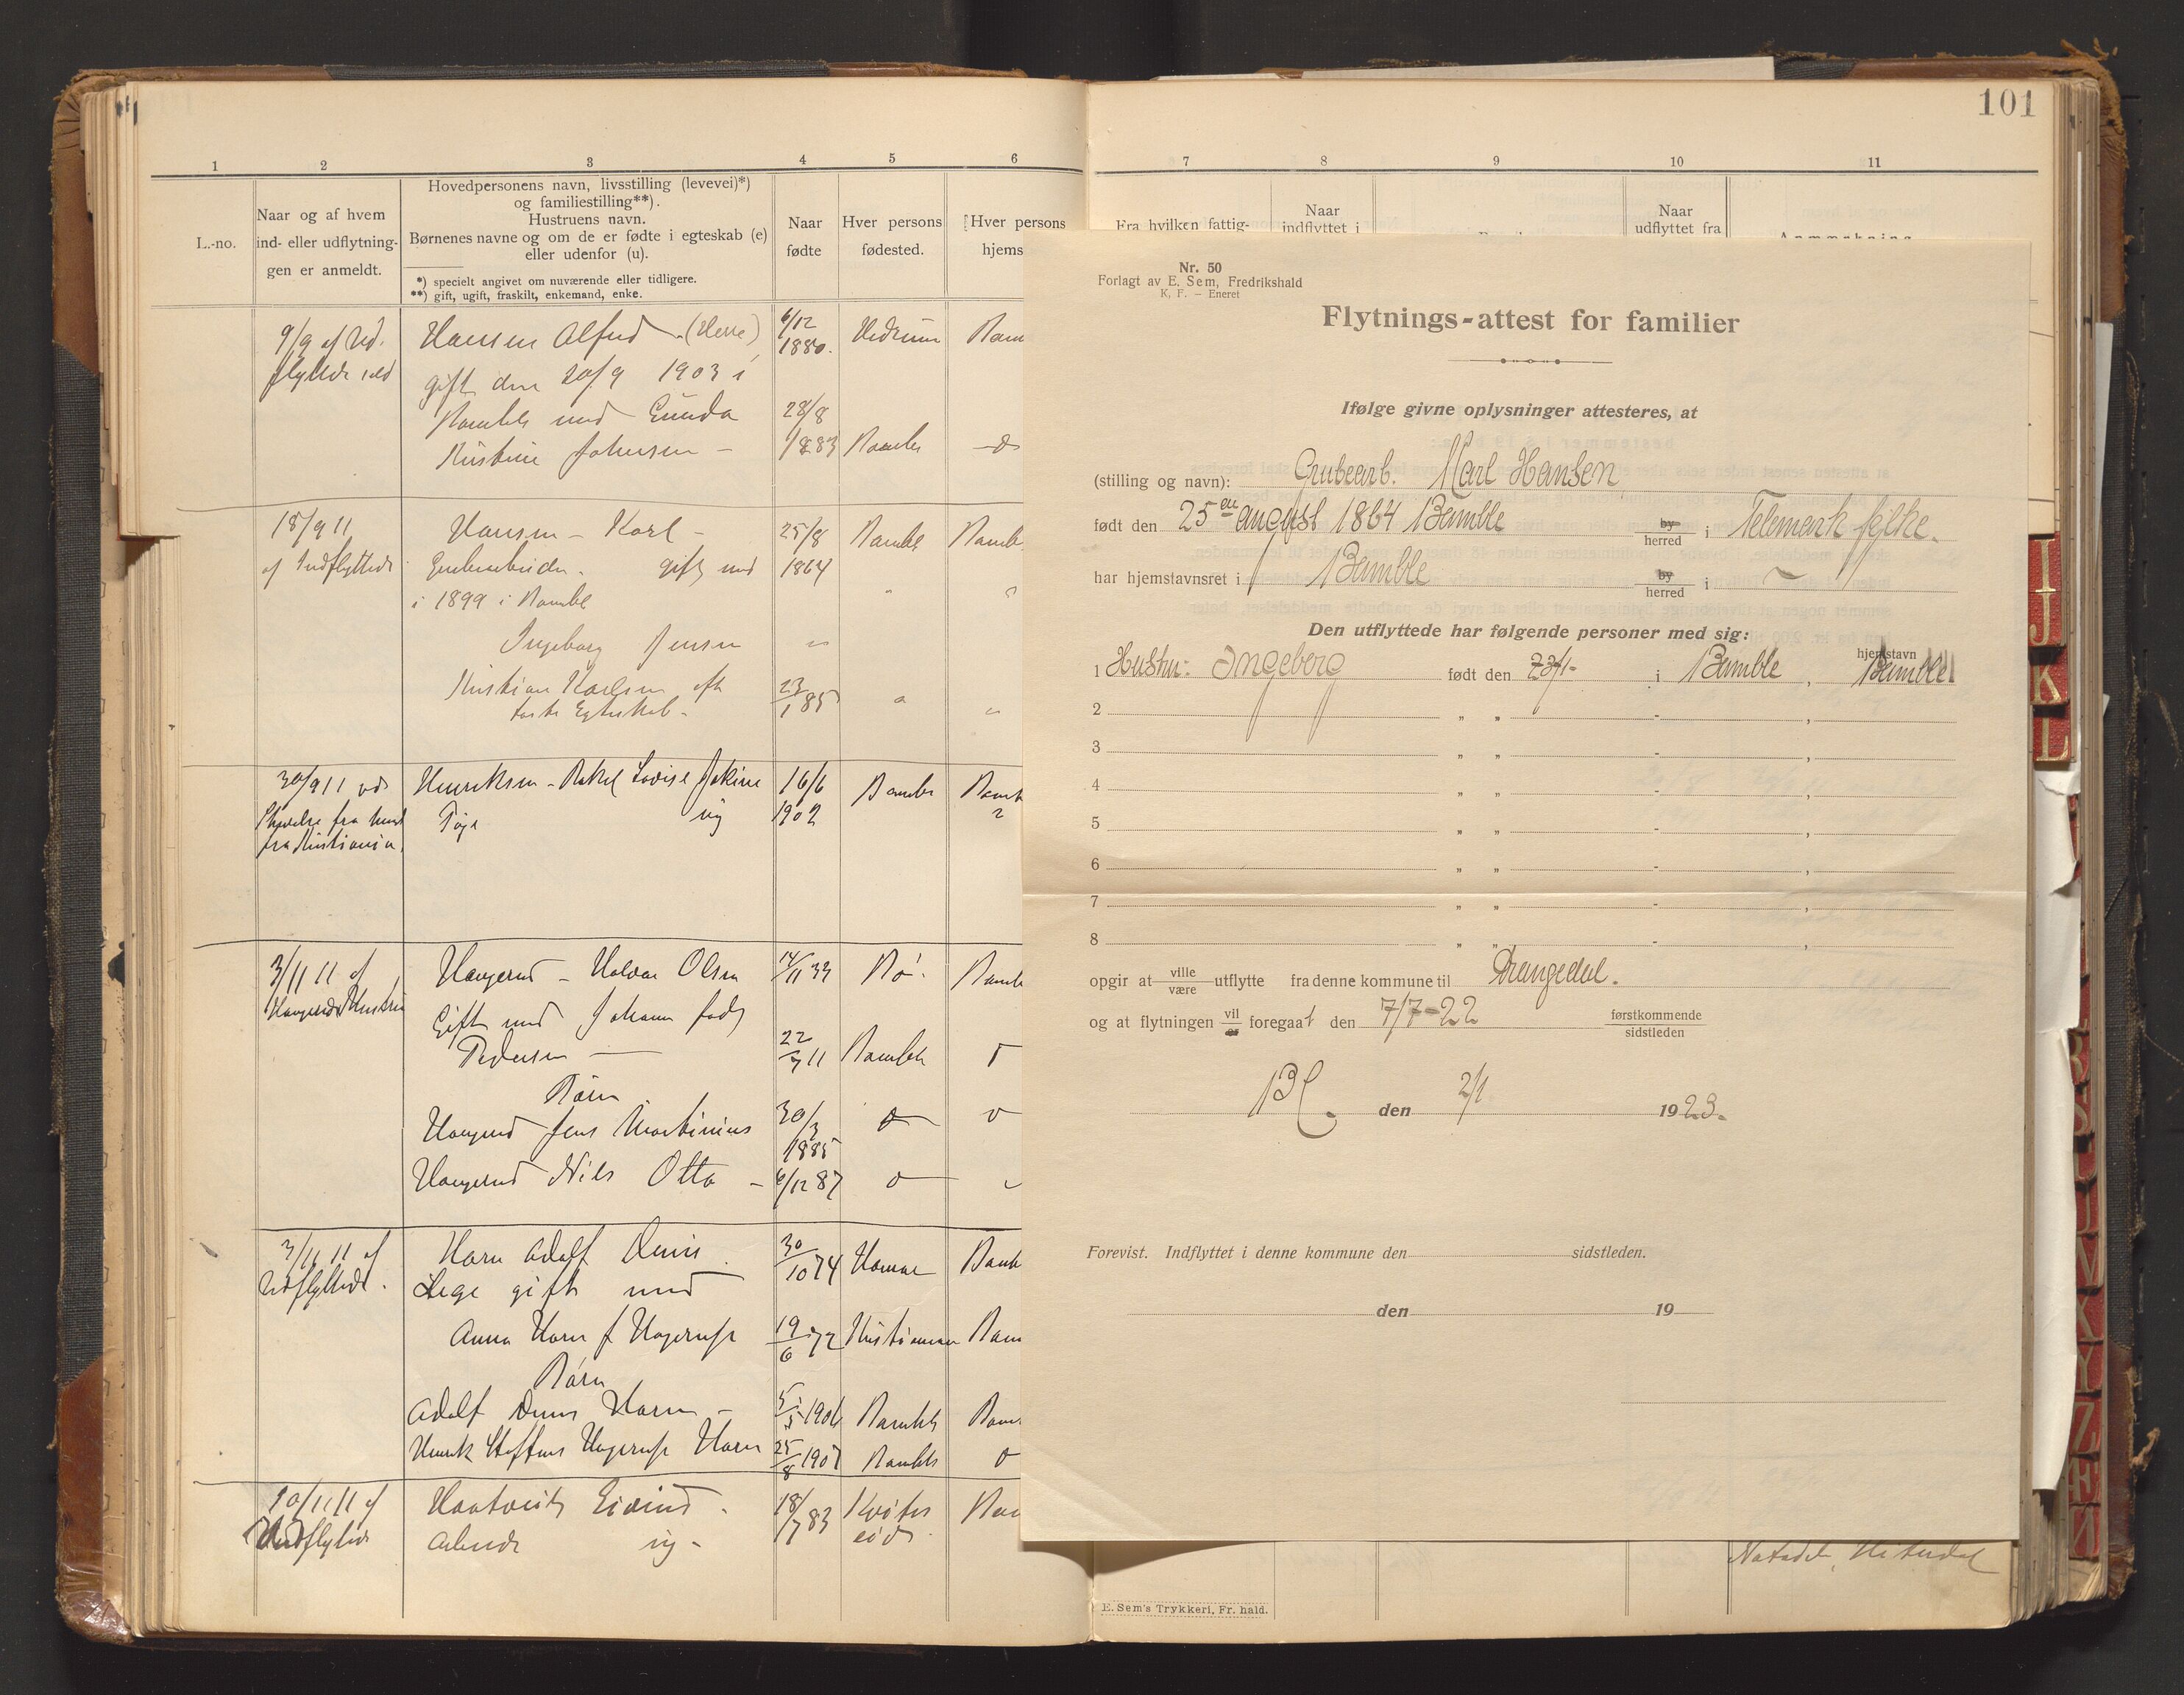 101
1 2 3 4 5 6
L.-no.
Naar og af hvem
ind- eller udflytnin-
gen er anmeldt.
Hovedpersonens navn, livsstilling (levevei)*)
og familiestilling**).
Hustruens navn.
Børnenes navne og om de er fødte i egteskab (e)
eller udenfor (u).
*) specielt angivet om nuværende eller tidligere.
**) gift, ugift, fraskilt, enkemand, enke.
Naar
fødte
Hver persons
fødested.
Hver persons
hjems
9/9 af Ud. Hansen Alfred (Herre) 6/12 1880. Hedrum Bam
gift den 20/9 1903 i
Bamble med Gunda 28/8
Kristine Johnsen – 1883 Bamble
18/9 11 Hansen – Karl – 25/8 Bamble Bamb
af Indflyttede Grubearbeider. gift med 1864
i 1899 i Bamble
Ingeborg Jensen
Kristian Karlsen 23/1 85
Egteskab –
30/9 11 Henriksen – Rakel Lovise Jokine 16/6 Bamble Bamb
fra Pige ug 1902
fra Kristiania.
3/11 11 af Haugerud – Halvor Olsen 14/11 33 Bø. Bamb
Haugeruds Hustru
Gift med Johanne født
Pedersen — 22/3 11 Bamble
Børn
Haugerud Jens Martinius 30/3 1885
Haugerud Nils Otto – 6/12 87
3/11 11 af Horn Adolf Denis 30/10 74 Hamar Bamb
Udflyttede. Læge gift med
Anna Horn f Hagerup 19/6 72 Kristiania Bam
Børn
Adolf Denis Horn – 5/5 1906 Bamble Bam
Henrik Steffens Hagerup Horn 25/8 1907 Bamble
10/11 11 af Eivind 18/7 83 Bam
Arbeide ug –
7 8 9 10 11
Fra hvilken fattig-
Naar
indflyttet i
Naar
udflyttet fra
Anmærkning
Nr. 50
Forlagt av E. Sem, Fredrikshald
K. F. — Eneret
Flytnings-attest for familier
Ifølge givne oplysninger attesteres, at
(stilling og navn): Grubearb. Karl Hansen
født den 25 en august 1864 Bamble by herred i Telemark fylke.
har hjemstavnsret i Bamble by herred i
Den utflyttede har følgende personer med sig:
hjemstavn
1 Hustru: Ingeborg født den 23/1- i Bamble, Bamble
2 „ „ - ,
3 „ „ - ,
4 „ „ - ,
5 „ „ - ,
6 „ „ - ,
7 „ „ - ,
8 „ „ - ,
opgir at ville være utflytte fra denne kommune til Drangedal.
og at flytningen vil er foregaat den 7/7-22 førstkommende sidstleden
Bl. den 2/1 1923.
Forevist. Indflyttet i denne kommune den sidstleden.
den 19
Hiterdal
E. Sem's Trykkeri, Fr. hald.
I
J
K
L